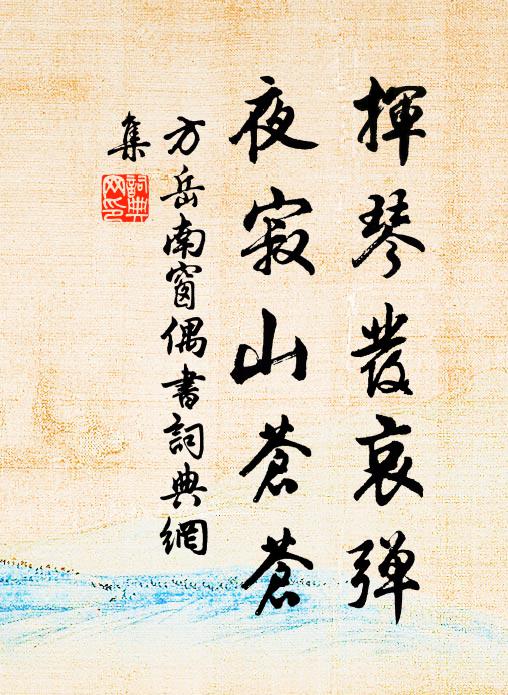 揮琴發哀彈
夜寂山蒼蒼
方岳南窗偶書詞典網
集
詞典
网印